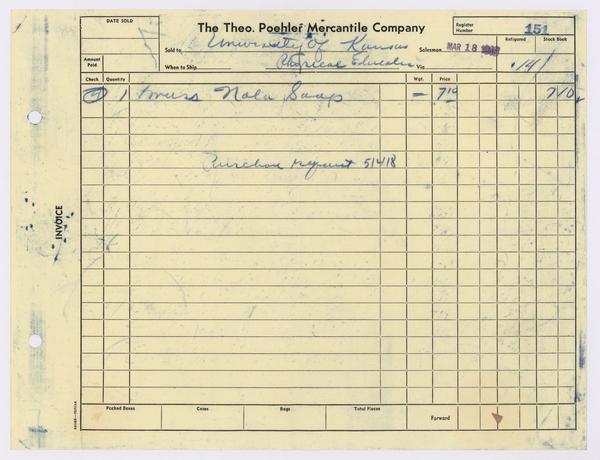 DATE SOLD
The Theo. Poehler Mercantile Company
Register Number 151
Sold to University Of Kansas
Salesman MAR 18
Refigured
Stock Book
Amount Paid
When to Ship Physical Education
Via
14
Check Quantity Wgt. Price
1 Nola Soap — 7 10 7 10
Purchase request 51418
INVOICE
Packed Boxes Cases Bags Total Pieces Forward